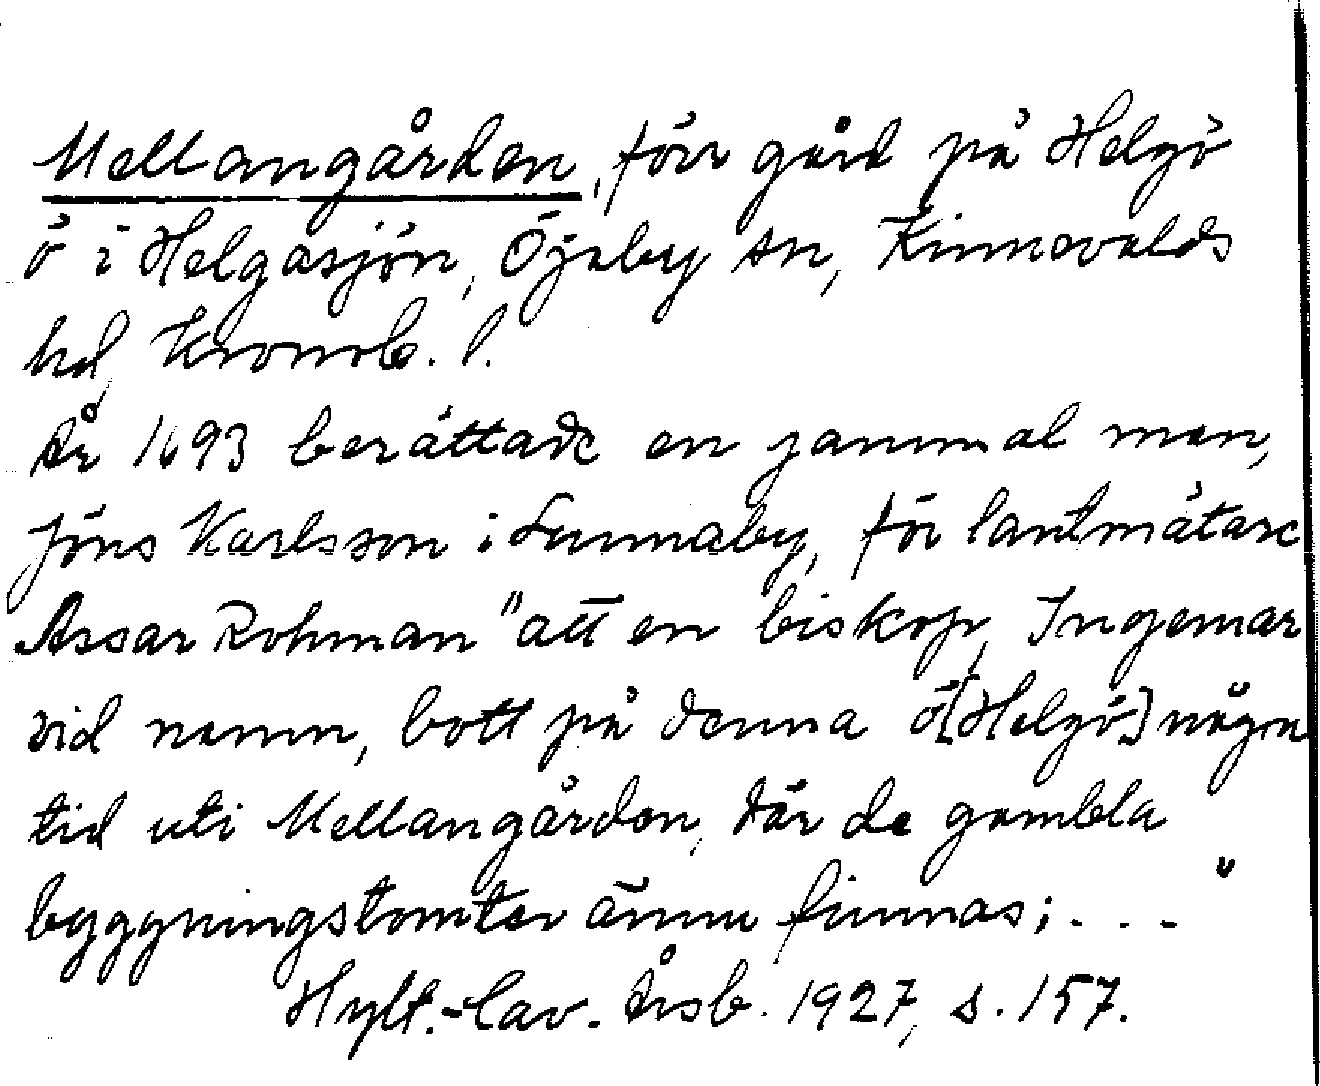 Mellangården, förr gård på Helgö
ö i Helgasjön, Öjaby sn, Kinnevalds
hd, Kronob. l.
År 1693 berättade en gammal man,
Jöns Karlsson i Lunnaby, för lantmätare
Assar Rohman "att en biskop, Ingemar
vid namn, bott på denna ö [Helgö] någon
tid uti Mellangården, där de gambla
byggningstomter ännu finnas; . . . "
Hylt.-Cav. Årsb. 1927, s. 157.